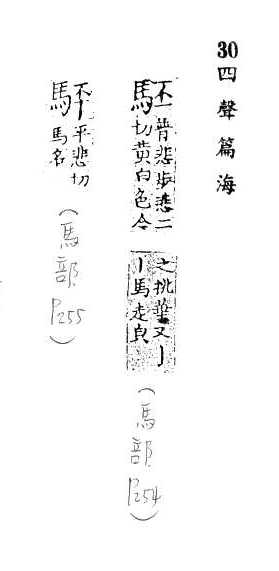 30四聲篇海
普悲步悲二
切黄白色今
之挑華又丨
丨馬走皃
(馬部 P254)
平悲切
馬名
(馬部 P255)